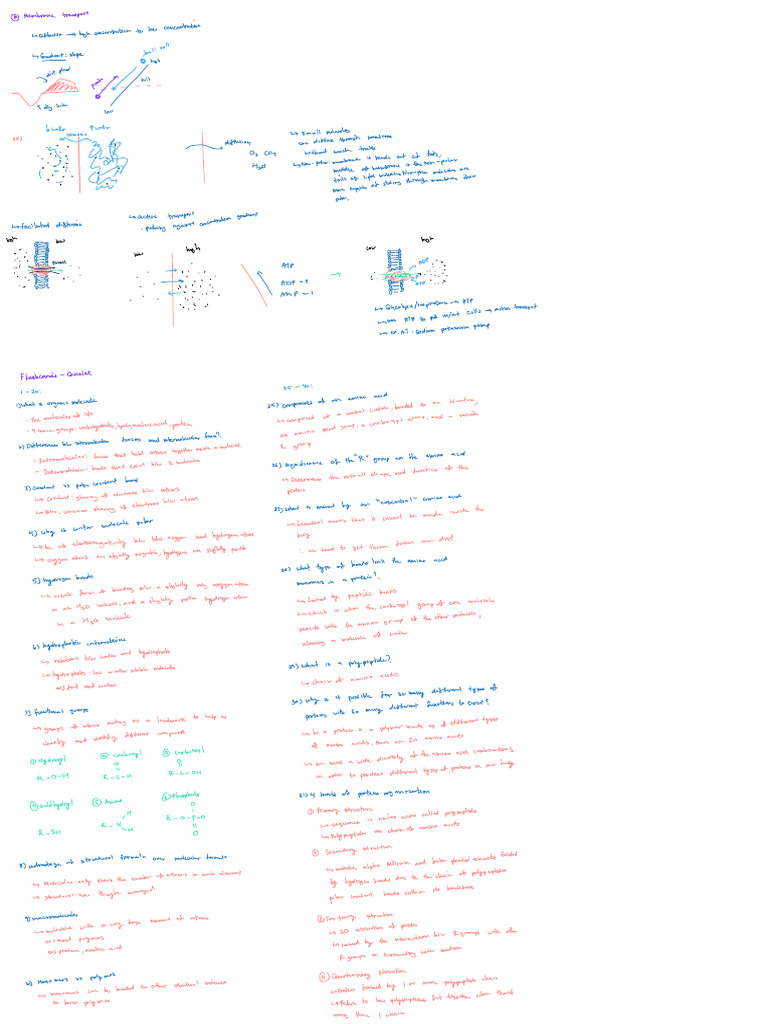 Membrane transport
↳ diffusion → high concentration to low concentration
↳ Gradient: slope
ball roll
high
push
hill
low
diffusion
O₂ CO₂
↳ small molecules
can diffuse through membrane
without much trouble
↳ Non-polar membrane is made out of fats,
middle of membrane is the non-polar
more capable of sliding through membrane than
polar.
↳ facilitated diffusion
high
low
↳ active transport
- pushing against concentration gradient
low
high
ATP
ADP = 2
AMP = 1
low
high
ADP
ATP
↳ Glycolysis/respiration → ATP
↳ use ATP to pull in/out cells → active transport
↳ ex. AT: sodium potassium pump
Flashcards - Quizlet
1 - 20:
1) What is organic molecule
- The molecules of life
- 4 main groups: carbohydrates, lipids, nucleic acid, protein
2) Difference b/w intramolecular forces and intermolecular force?
- Intramolecular: force that hold atoms together inside a molecule
- Intermolecular: bonds that exist b/w 2 molecules
3) Covalent vs polar covalent bond
↳ covalent: sharing of electrons b/w atoms
↳ polar: unequal sharing of electrons b/w atoms
4) Why is water molecule polar
↳ bc of electronegativity b/w the oxygen and hydrogen atoms
↳ oxygen atoms are slightly negative, hydrogen are slightly positive
5) hydrogen bonds
↳ weak form of bonding b/w a slightly neg oxygen atom
in an H₂O molecule, and a slightly positive hydrogen atom
in a H₂O molecule
6) hydrophobic interactions
↳ relations b/w water and hydrophobe
↳ hydrophobe: low water soluble molecule
ex) fat and water
7) functional groups
↳ groups of atoms acting as a landmark to help us
classify and identify different compounds
① Hydroxyl
R - O - H
② Carbonyl
O
R - C - H
③ Carboxyl
O
R - C - OH
④ Sulfhydryl
R - SH
⑤ Amine
H
R - N
H
⑥ Phosphate
O
R - O - P - O
O
8) advantage of structural formula over molecular formula
↳ Molecular: only shows the number of atoms in each element
↳ structural: how they're arranged
9) macromolecules
↳ molecules with a very large amount of atoms
ex) protein, nucleic acid
10) Monomers vs polymers
↳ monomers can be bonded to other identical molecules
to form polymers
25 - 40:
25) components of an amino acid
↳ comprised of a central carbon, bonded to an H-atom,
an amino acid group, a carboxyl group, and a variable
R group
26) significance of the "R" group on the amino acid
↳ Determines the overall shape and function of the
protein
27) what is meant by an "essential" amino acid
↳ Essential means that it cannot be made inside the
body
∴ we need to get them from our diet
28) What type of bonds link the amino acid
monomers in a protein?
↳ linked by peptide bonds
↳ which is when the carboxyl group of one molecule
reacts with the amino group of the other molecule,
releasing a molecule of water
29) What is a polypeptide?
↳ chain of amino acids
30) why is it possible for so many different types of
proteins with so many different functions to exist?
↳ bc a protein is a polymer made up of different types
of amino acids, from our 20 amino acids
↳ we need a wide diversity of the amino acid combinations
in order to produce different types of proteins in our body
31) 4 levels of protein organization
① Primary structure
↳ sequence in amino acids called polypeptide
↳ Polypeptides are chain of amino acids
② Secondary structure
alpha helices and beta pleated sheets folded
by hydrogen bonds due to the chain of polypeptides
polar covalent bonds within the backbone
③ Tertiary structure
↳ 3D structure of protein
↳ caused by the interactions b/w R groups with other
R groups or surrounding water medium
④ Quaternary structure
↳ Protein formed by 1 or more polypeptide chain
↳ Refers to how polypeptides fit together when there's
more than 1 chain